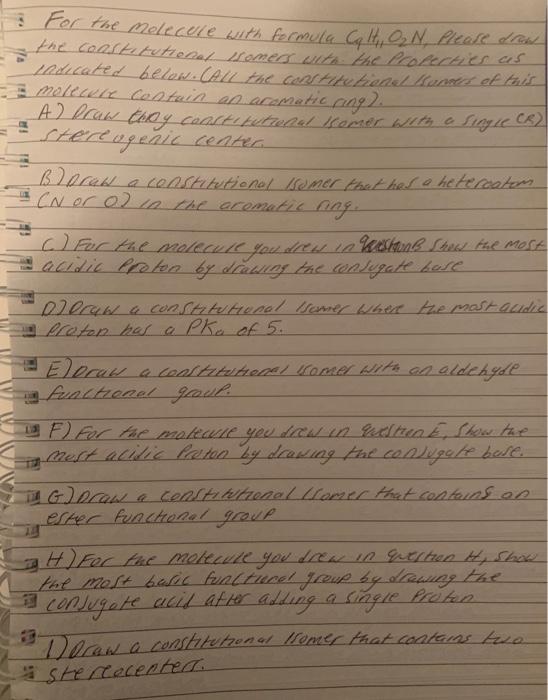 For the molecule with formula C9H11O2N, Please draw
the constitutional isomers with the Properties as
indicated below. (All the constitutional Isomers of this
molecule contain an aromatic ring).
A) Draw the constitutional isomer with a single (R)
stereogenic center.
B) Draw a constitutional Isomer that has a heteroatom
(N or O) in the aromatic ring.
C.) For the molecule you drew in question B show the most
acidic Proton by drawing the conjugate base
D) Draw a constitutional Isomer where the most acidic
Proton has a PKa of 5.
E) Draw a constitutional isomer with an aldehyde
functional group.
F) For the molecule you drew in question E, Show the
most acidic Proton by drawing the conjugate base.
G) Draw a constitutional Isomer that contains an
ester functional group
H) For the molecule you drew in question H, show
the most basic functional group by drawing the
conjugate acid after adding a single Proton
I) Draw a constitutional Isomer that contains two
stereocenters.